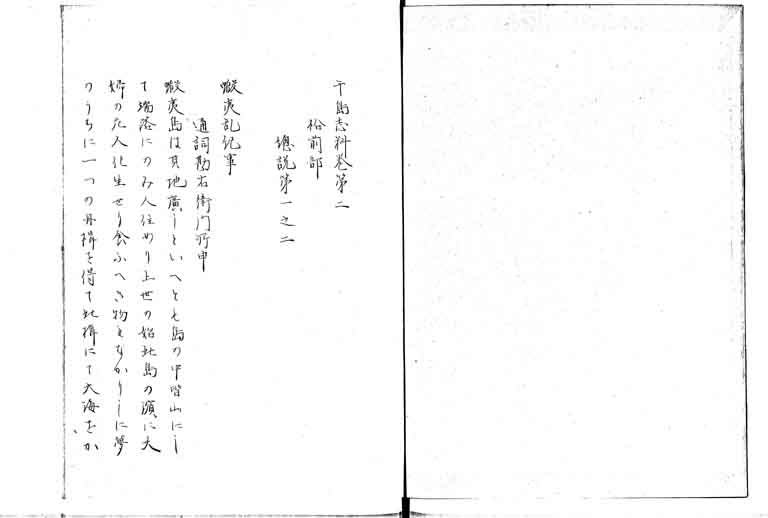 千島志料巻第二
松前部
総説第一之二
蝦夷乱紀事
通詞勘右衛門所申
蝦夷島は其地廣しといへとも島の中皆山にし
て端添にのみ人住めり上世の始此島の濱に夫
婦の花人化生せり食ふへき物もなかりしに夢
のうちに一つの舟檝を得て此檝にて大海をか